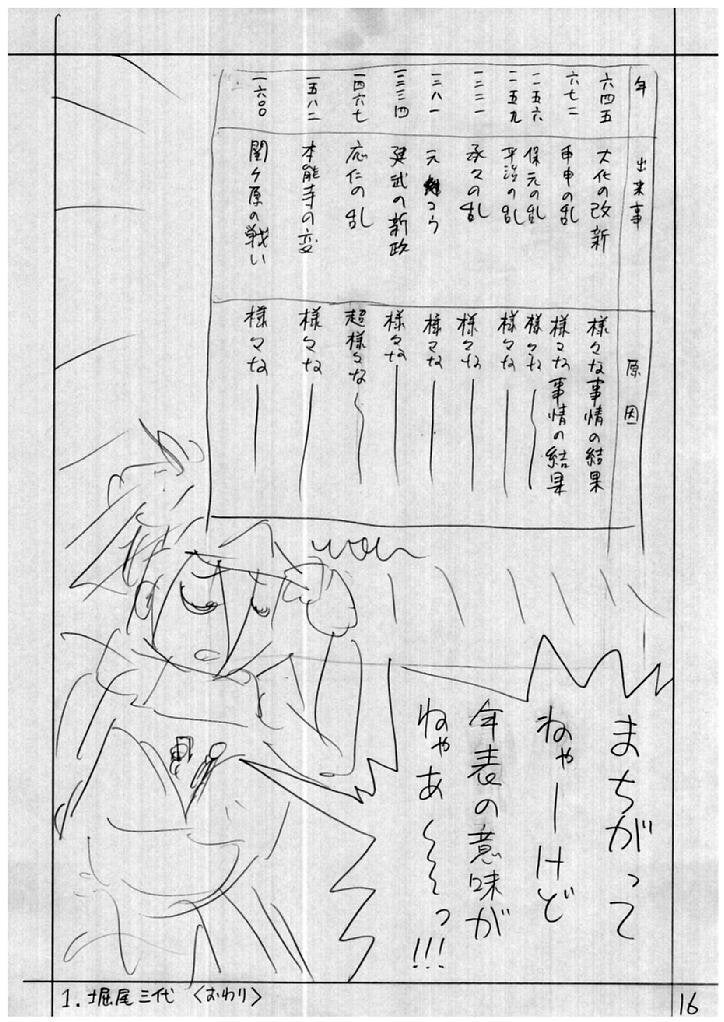 年
出来事
原因
六四五
大化の改新
様々な事情の結果
六七二
申申の乱
様々な事情の結果
一一五六
保元の乱
様々な
一一五九
平治の乱
様々な
一二二一
承久の乱
様々な
一三八一
元
こう
様々な
一三三四
建武の新政
様々な
一四六七
応仁の乱
超様々な
一五八二
本能寺の変
様々な
一六〇〇
関ヶ原の戦い
様々な
まちがって
ねゃーけど
年表の意味が
ねゃあ〜〜っ!!!
1. 堀尾三代 〈おわり〉
16